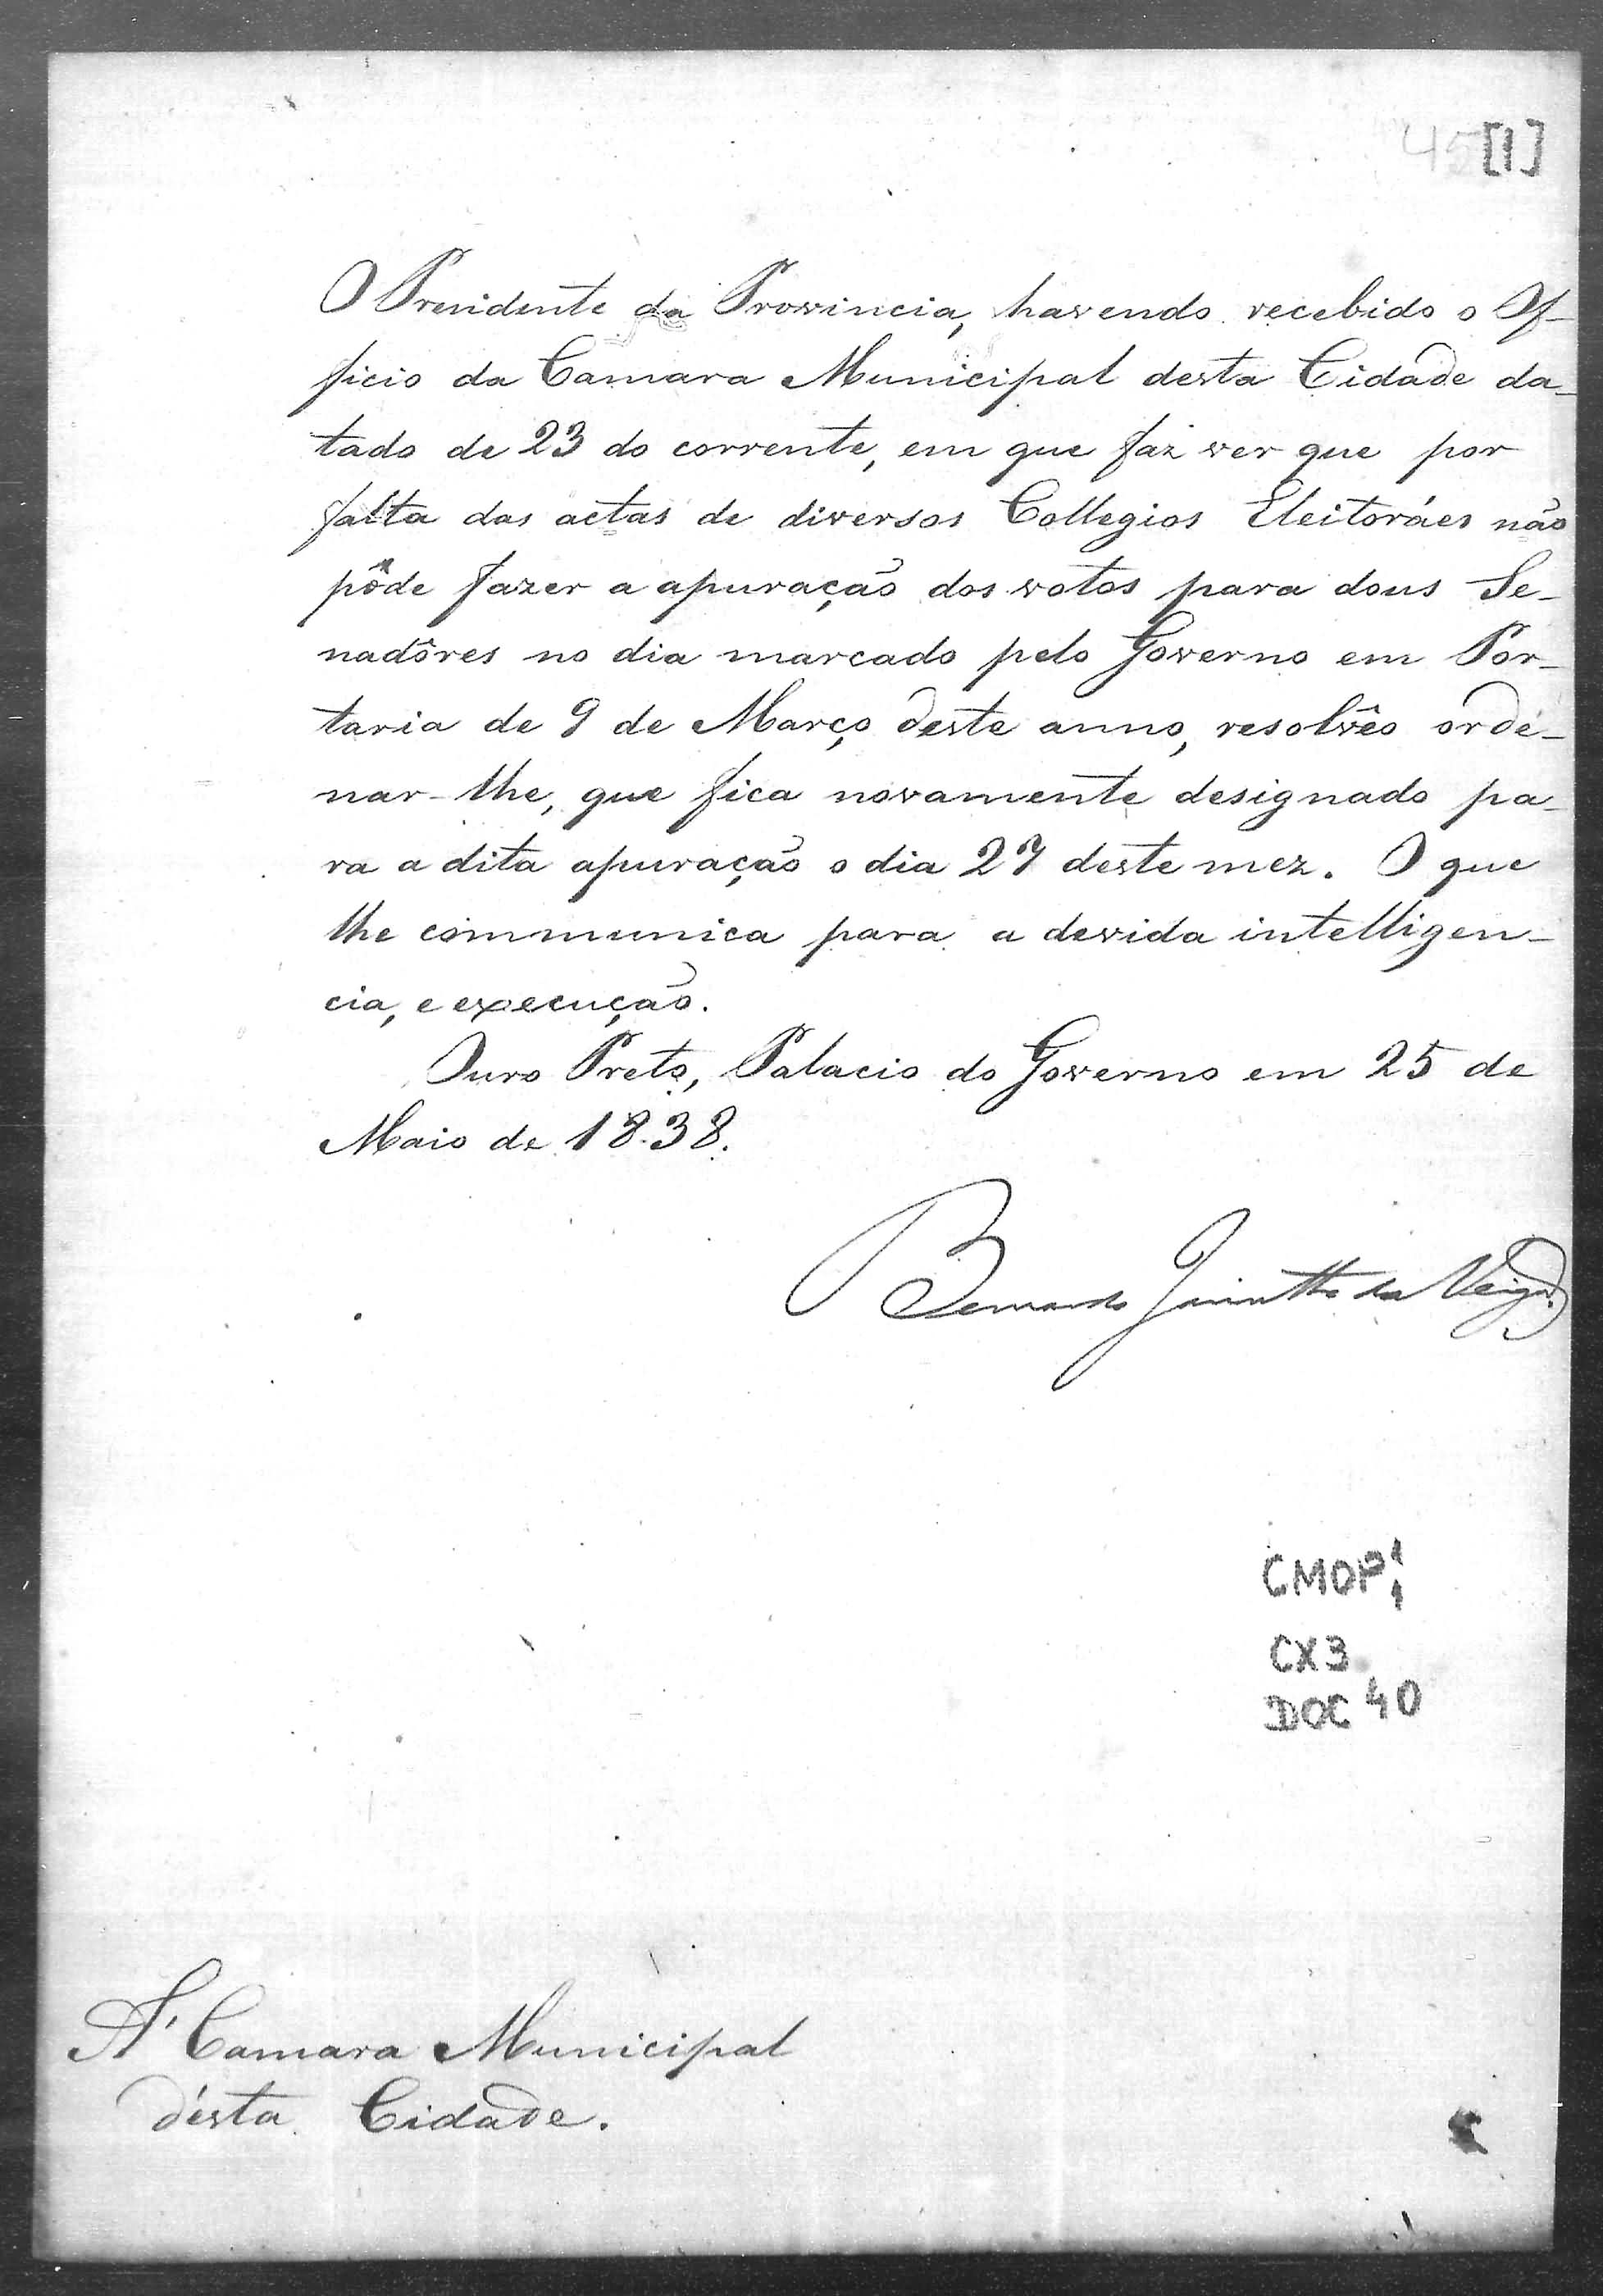 45 [1]
O Presidente da Provincia, havendo recebido o Of-
ficio da Camara Municipal desta Cidade da-
tado de 23 do corrente, em que faz ver que por
falta das actas de diversos Collegios Eleitoráes não
pôde fazer a apuração dos votos para dous Se-
nadôres no dia marcado pelo Governo em Por-
taria de 9 de Março deste anno, resolvêo orde-
nar-lhe, que fica novamente designado pa-
ra a dita apuração o dia 27 deste mez. O que
lhe communica para a devida intelligen-
cia, e execução.
Ouro Preto, Palacio do Governo em 25 de
Maio de 1838.
Bernardo Jacintho da Veiga
CMOP
CX3
DOC 40
Á Camara Municipal
désta Cidade.